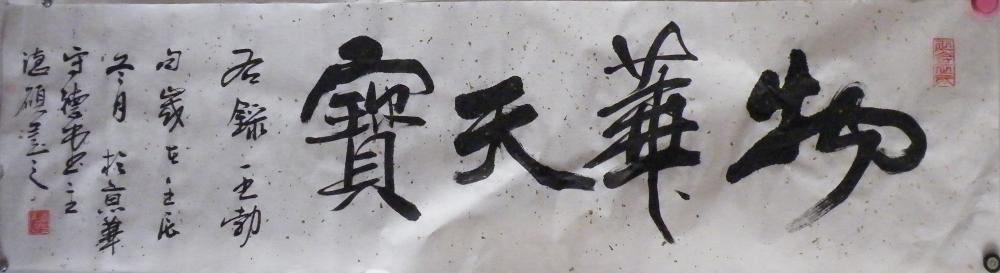 物華天寶
右錄王勃
句歲在壬辰
冬月於京華
守德書屋主
德碩書之